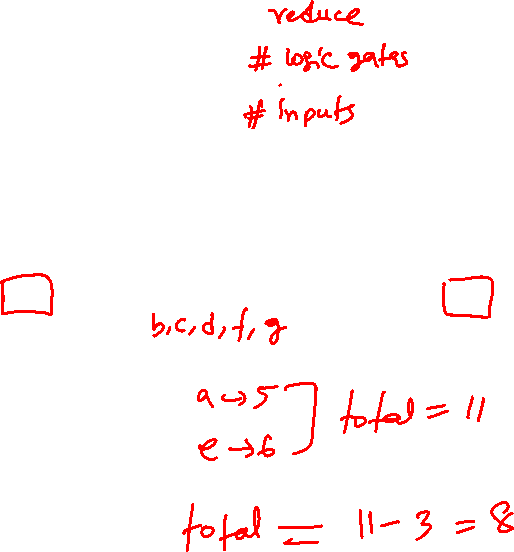 reduce
# logic gates
# inputs
b,c,d,f,g
a → 5
e → 6
total = 11
total = 11 - 3 = 8